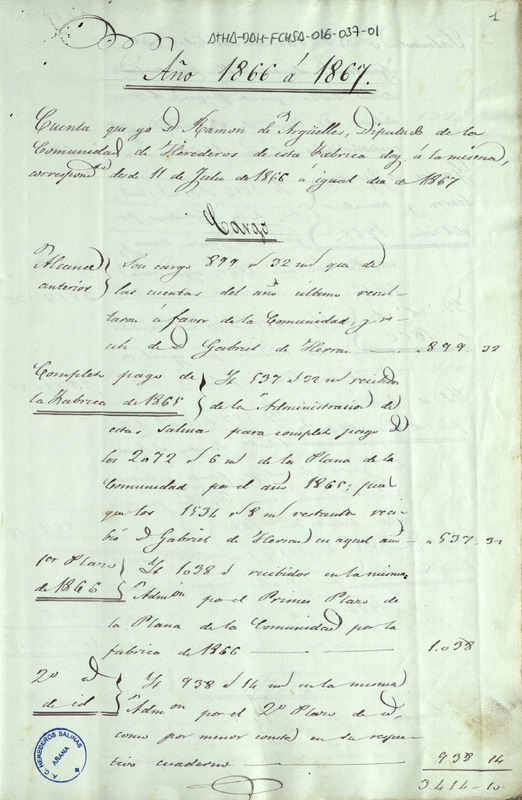 1
ATHA-DAH-FCHSA-016-037-01
Año 1866 á 1867.
Cuenta que yo D. Ramon de Argüelles, Diputado de la
Comunidad de Herederos de esta Fabrica doy á la misma,
correspond.te desde 11 de Julio de 1866 a igual dia de 1867
Cargo
Alcance anterior
Son cargo 899 rs 32 ms que de
las cuentas del año ultimo resul-
taron á favor de la Comunidad, y re-
cibí de D Gabriel de Herran " 899 32
Completo pago de
la Fabrica de 1865
Yt 537 rs 32 ms recibidos
de la Administracion de
estas Salinas para completo pago de
los 2072 rs 6 ms de la Plana de la
Comunidad por el año 1865; pues
que los 1534 rs 8 ms restantes reci-
bió D Gabriel de Herran en aquel año " 537 32
1er Plazo
de 1866
Yt 1038 rs recibidos en la misma
Admon por el Primer Plazo de
la Plana de la Comunidad por la
fabrica de 1866 1.038
2º id
de id
Yt 938 rs 14 ms en la misma
Admon por el 2º Plazo de id,
como por menor consta en su respec-
tivo cuaderno 938 14
3.414-10
C. HEREDEROS SALINAS
AÑANA